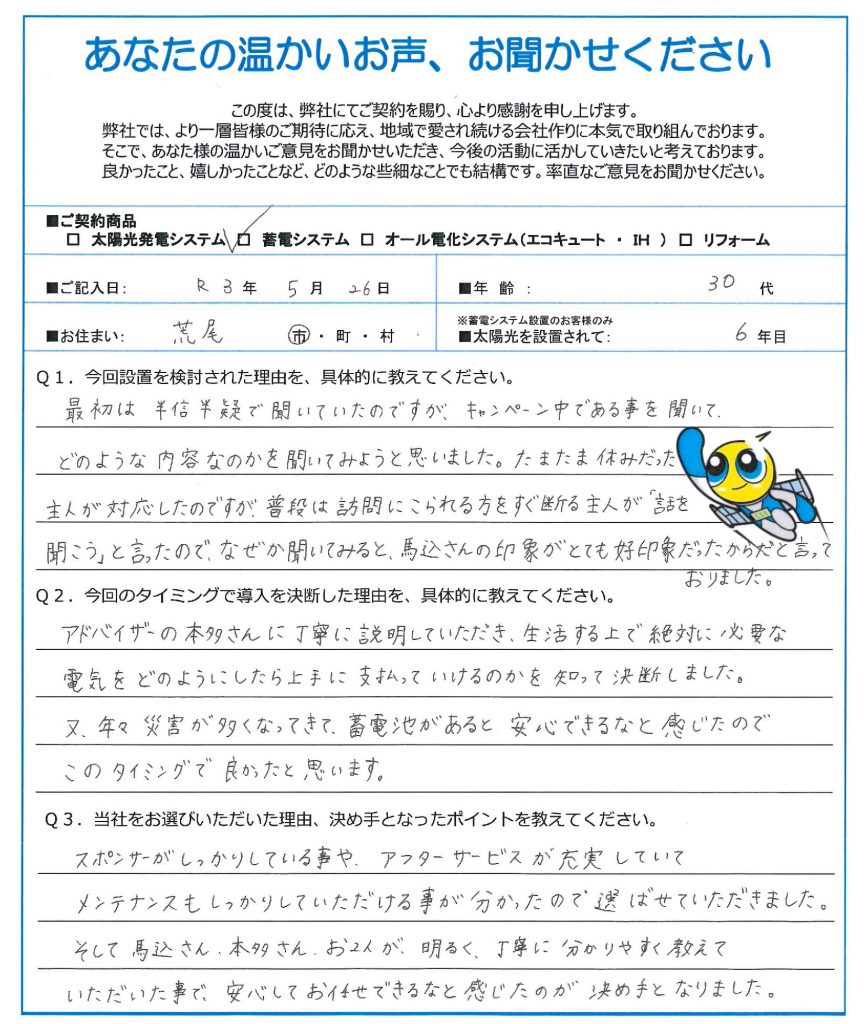 あなたの温かいお声、お聞かせください
この度は、弊社にてご契約を賜り、心より感謝を申し上げます。
弊社では、より一層皆様のご期待に応え、地域で愛され続ける会社作りに本気で取り組んでおります。
そこで、あなた様の温かいご意見をお聞かせいただき、今後の活動に活かしていきたいと考えております。
良かったこと、嬉しかったことなど、どのような些細なことでも結構です。率直なご意見をお聞かせください。
■ご契約商品
□ 太陽光発電システム ☑ 蓄電システム □ オール電化システム(エコキュート ・ IH ) □ リフォーム
■ご記入日: R 3 年 5 月 26 日 ■年 齢 : 30 代
■お住まい: 荒尾 ㊞市・町・村
※蓄電システム設置のお客様のみ
■太陽光を設置されて: 6 年目
Q1.今回設置を検討された理由を、具体的に教えてください。
最初は半信半疑で聞いていたのですが、キャンペーン中である事を聞いて、
どのような内容なのかを聞いてみようと思いました。たまたま休みだった
主人が対応したのですが、普段は訪問にこられる方をすぐ断る主人が「話を
聞こう」と言ったので、なぜか聞いてみると、馬込さんの印象がとても好印象だったからだと言って
おりました。
Q2.今回のタイミングで導入を決断した理由を、具体的に教えてください。
アドバイザーの本多さんに丁寧に説明していただき、生活する上で絶対に必要な
電気をどのようにしたら上手に支払っていけるのかを知って決断しました。
又、年々災害が多くなってきて、蓄電池があると安心できるなと感じたので
このタイミングで良かったと思います。
Q3.当社をお選びいただいた理由、決め手となったポイントを教えてください。
スポンサーがしっかりしている事や、アフターサービスが充実していて
メンテナンスもしっかりしていただける事が分かったので選ばせていただきました。
そして馬込さん、本多さん、お2人が、明るく、丁寧に分かりやすく教えて
いただいた事で、安心してお任せできるなと感じたのが決め手となりました。